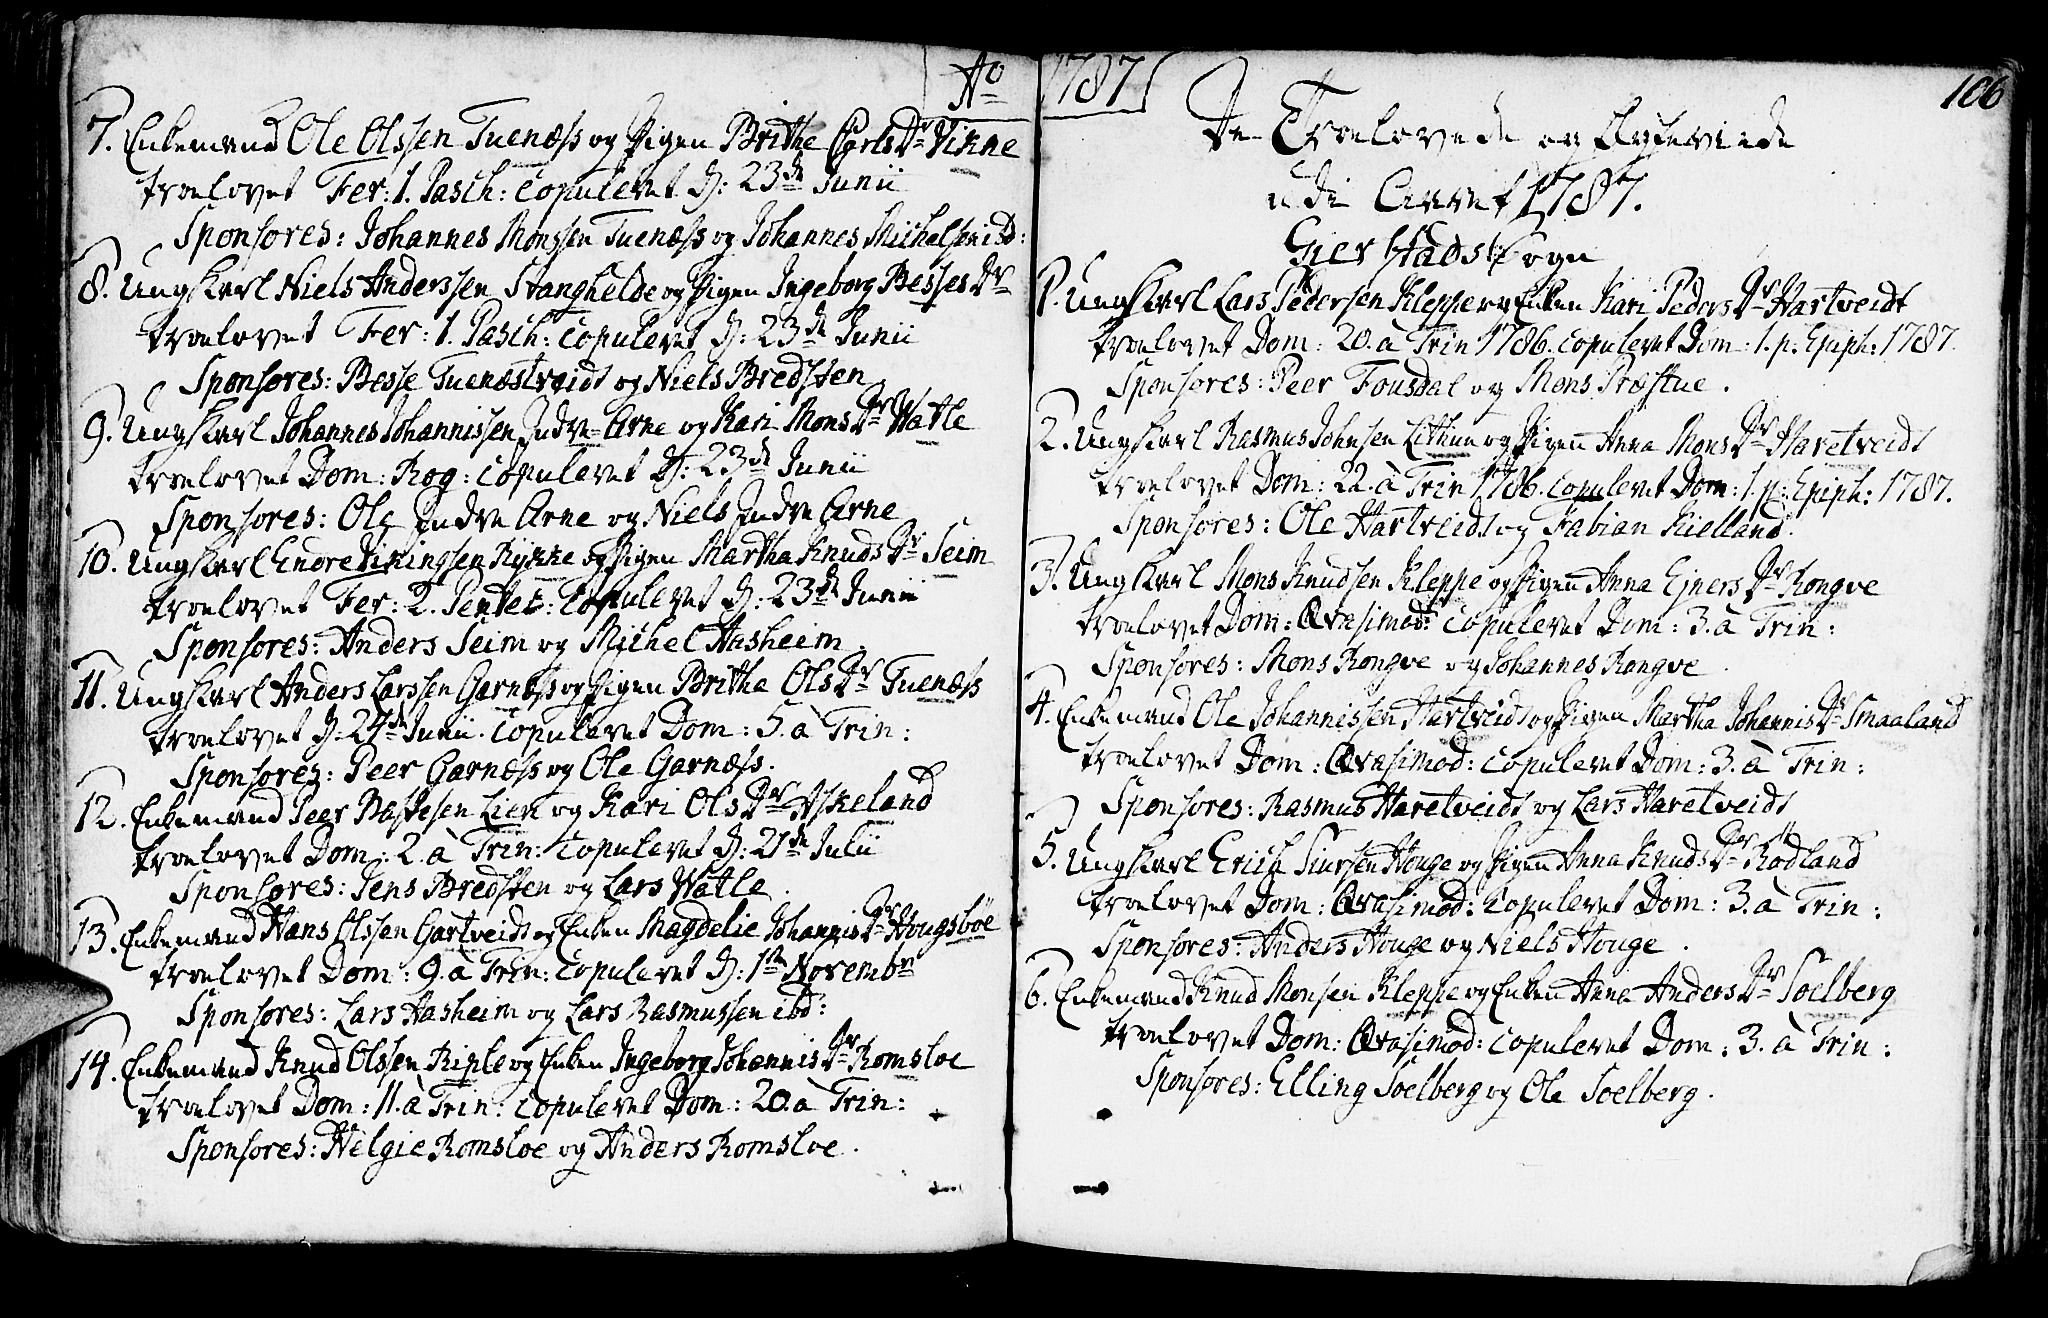 Ao
7. Enkemand Ole Olssen Tuenæss og Pigen Brithe Carls Dr Vikne
troelovet Fer: 1. Pasch: copuleret d: 23de Junii
Sponsores: Johannes Monssen Tuenæss og Johannes Michelsen ibd:
8. Ungkarl Niels Anderssen Stanghelde og Pigen Ingeborg Besses Dr
troelovet Fer: 1. Pasch: copuleret d: 23de Junii
Sponsores: Besse Tuenæstveidt og Niels Bredsten
9. Ungkarl Johannes Johannissen Indre-Arne og Kari Mons Dr Watle
troelovet Dom: Rog: copuleret d: 23de Junii
Sponsores: Ole Indre Arne og Niels Indre Arne
10. Ungkarl Endre Vikingsen Rykke og Pigen Martha Knuds Dr Seim
troelovet Fer: 2. Pentec: copuleret d: 23de Junii
Sponsores: Anders Seim og Michel Aasheim
11. Ungkarl Anders Larssen Garnæss og Pigen Britha Ols Dr Tuenæss
troelovet d: 24de Junii. copuleret Dom: 5. à Trin:
Sponsores: Peer Garnæss og Ole Garnæss.
12. Enkemand Peer Baste​sen Lien og Kari Ols Dr Askeland
troelovet Dom: 2. à Trin: copuleret d: 21de Julii
Sponsores: Jens Bredsten og Lars Watle.
13. Enkemand Hans Olssen Gartveidt og Enken Magdelie Johannis Dr Hougsböe
troelovet Dom: 9. à Trin: copuleret d: 1ste Novembr
Sponsores: Lars Aasheim og Lars Rasmussen ibd:
14. Enkemand Knud Olssen Riple og Enken Ingeborg Johannis Dr Romsloe
troelovet Dom: 11. à Trin: copuleret Dom: 20. à Trin:
Sponsores: Helgie Romsloe og Anders Romsloe.
1787
106
De Troelovede og Egteviede
udi Aaret 1787.
Gierstad Sogn
1. Ungkarl Lars Pedersen Kleppe og Enken Kari Peders Dr Hartveidt
troelovet Dom: 20. à Trin 1786. copuleret Dom: 1. p: Epiph: 1787.
Sponsores: Peer Fousdal og Mons Præstue.
2. Ungkarl Rasmus Johnsen Lithun og Pigen Anna Mons Dr Haretveidt
troelovet Dom: 22. à Trin 1786. copuleret Dom: 1. p: Epiph: 1787.
Sponsores: Ole Hartveidt og Fabian Kielland.
3. Ungkarl Mons Knudsen Kleppe og Pigen Anna Ejners Dr Rongve
troelovet Dom: Qvasimod: copuleret Dom: 3. à Trin:
Sponsores: Mons Rongve og Johannes Rongve.
4. Enkemand Ole Johannissen Hartveidt og Pigen Martha Johannis Dr Smaaland
troelovet Dom: Qvasimod: copuleret Dom: 3. à Trin:
Sponsores: Rasmus Haretveidt og Lars Haretveidt
5. Ungkarl Erich Siursen Houge og Pigen Anna Knuds Dr Rödland
troelovet Dom: Qvasimod: copuleret Dom: 3. à Trin:
Sponsores: Anders Houge og Niels Houge.
6. Enkemand Knud Monsen Kleppe og Enken Anna Anders Dr Soelberg
troelovet Dom: Qvasimod: copuleret Dom: 3. à Trin:
Sponsores: Elling Soelberg og Ole Soelberg.